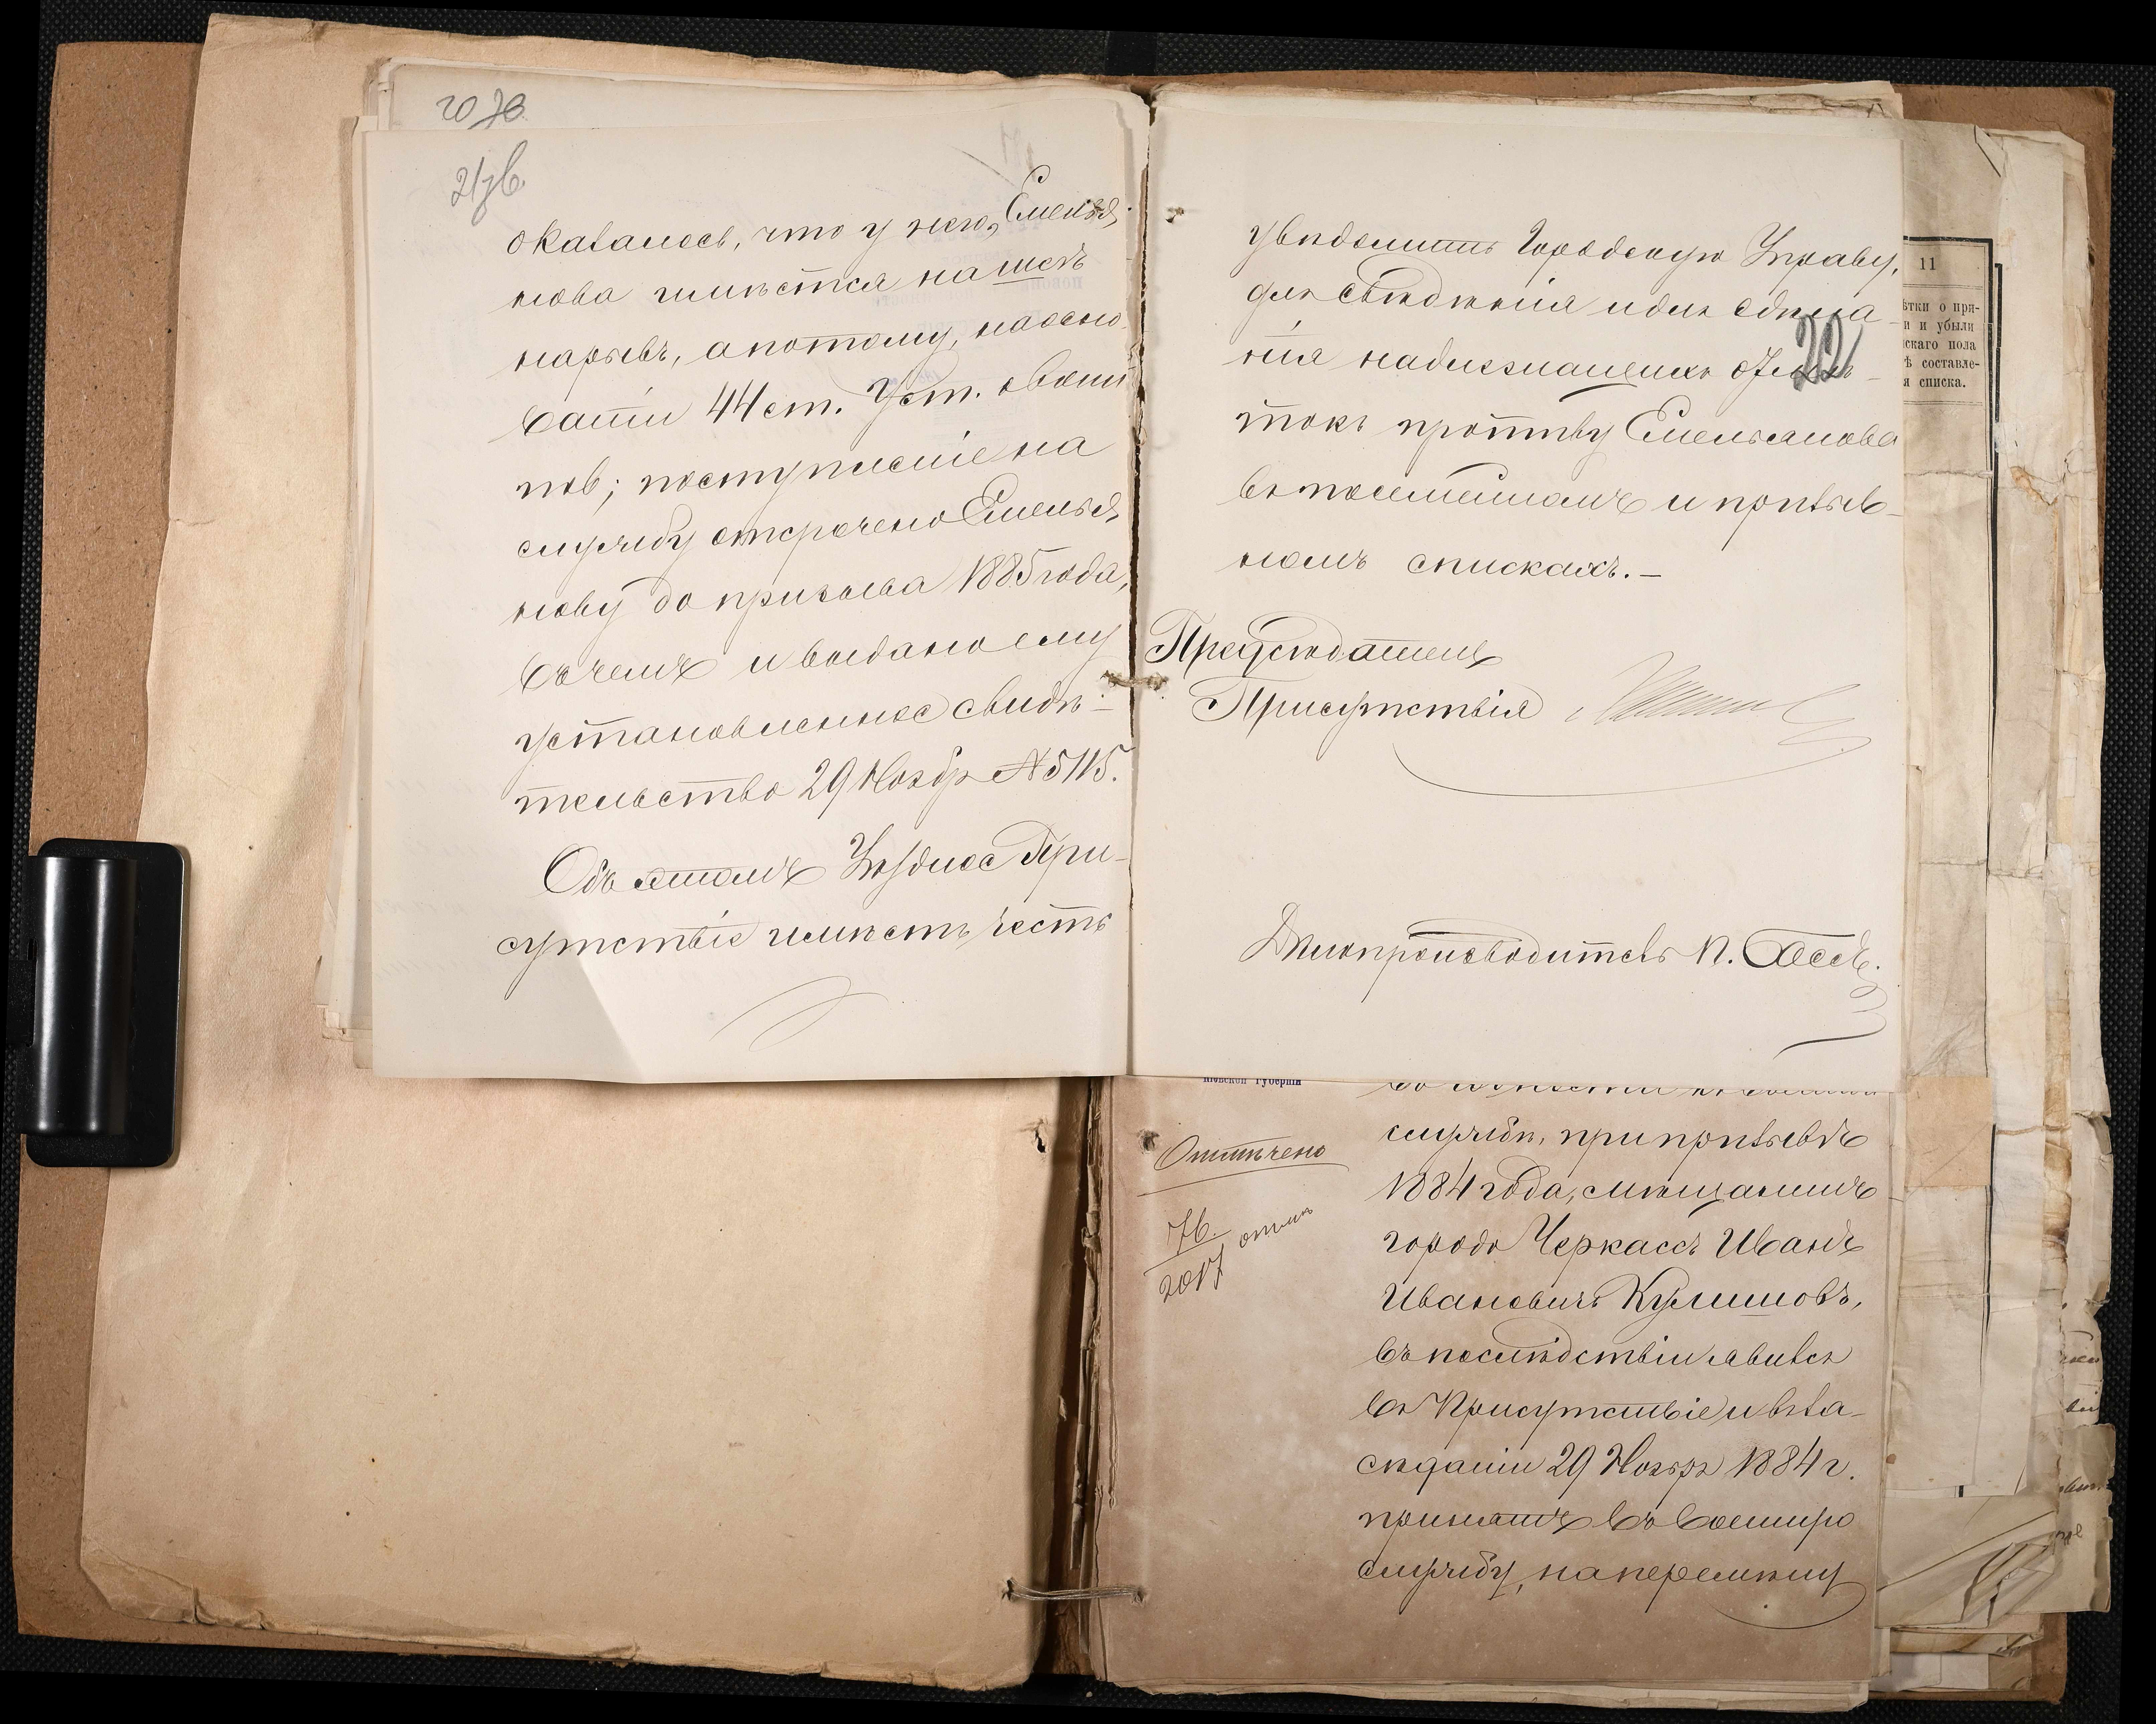 20 зв.
21 зв.
оказалось, что у него, Емелья-
нова имѣется на шеѣ
нарывъ, а потому, на осно-
ваніи 44 ст. Уст. о воин.
пов; поступленіе на
службу отсрочено Емелья-
нову до призыва 1885 года,
въ чемъ и выдано ему
установленное свидѣ-
тельство 29 Ноябр. № 5115.
Объ этомъ Уѣздное При-
сутствіе имѣетъ честь
увѣдомить Городскую Управу,
для свѣдѣнія и для сдѣла-
нія надлежащихъ отмѣ-
22
токъ противу Емельянова
въ посемейномъ и призыв-
номъ спискахъ.—
Предсѣдатель
Присутствія
Дѣлопроизводитель П.
11
ѣтки о при-
и и убыли
скаго пола
ѣ составле-
я списка.
Кіевской губерніи
Отмѣчено
76.
2017
службы, при призывѣ
1884 года, мѣщанинъ
города Черкассъ Иванъ
Ивановичъ
въ послѣдствіи явился
въ Присутствіе и въ за-
сѣданіи 29 Ноября 1884 г.
принятъ въ военную
службу,